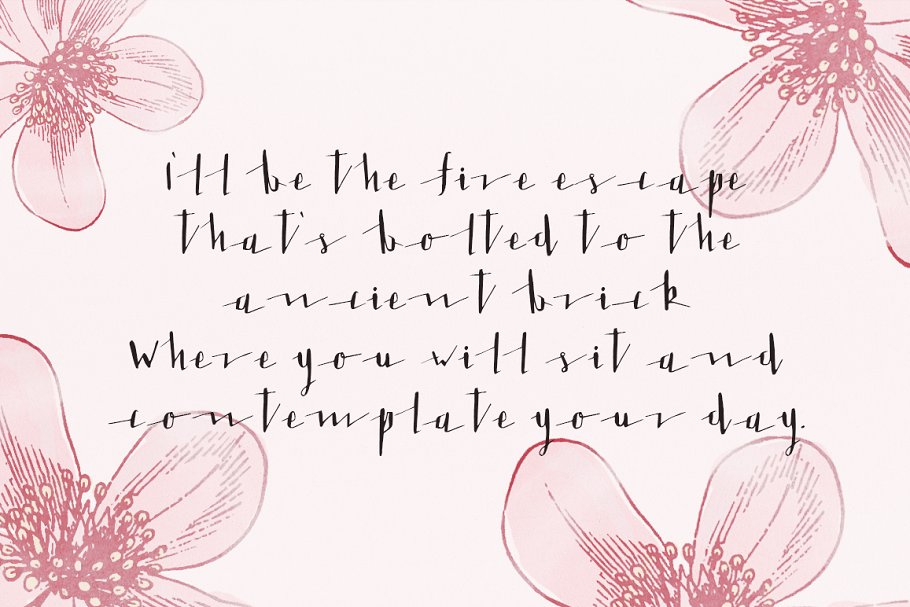 i'll be the fire escape
that's bolted to the
ancient brick
Where you will sit and
contemplate your day.